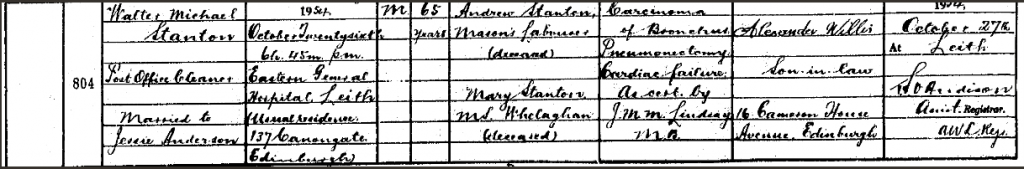 804
Walter Michael
Stanton
Post Office Cleaner
Married to
Jessie Anderson
1954
October Twentysixth
6h. 45m. p.m.
Eastern General
Hospital, Leith
Usual residence
137 Canongate
Edinburgh
M
65
Years
Andrew Stanton,
Mason's Labourer
(deceased)
Mary Stanton
M.S. Whelaghan
(deceased)
Carcinoma
of Bronchus
Pneumonectomy
Cardiac failure
As cert. by
J.M.M. Lindsay
M.B.
Alexander Willis
Son-in-law
16 Cameron House
Avenue, Edinburgh
1954,
October 27th
At Leith
Assist. Registrar.